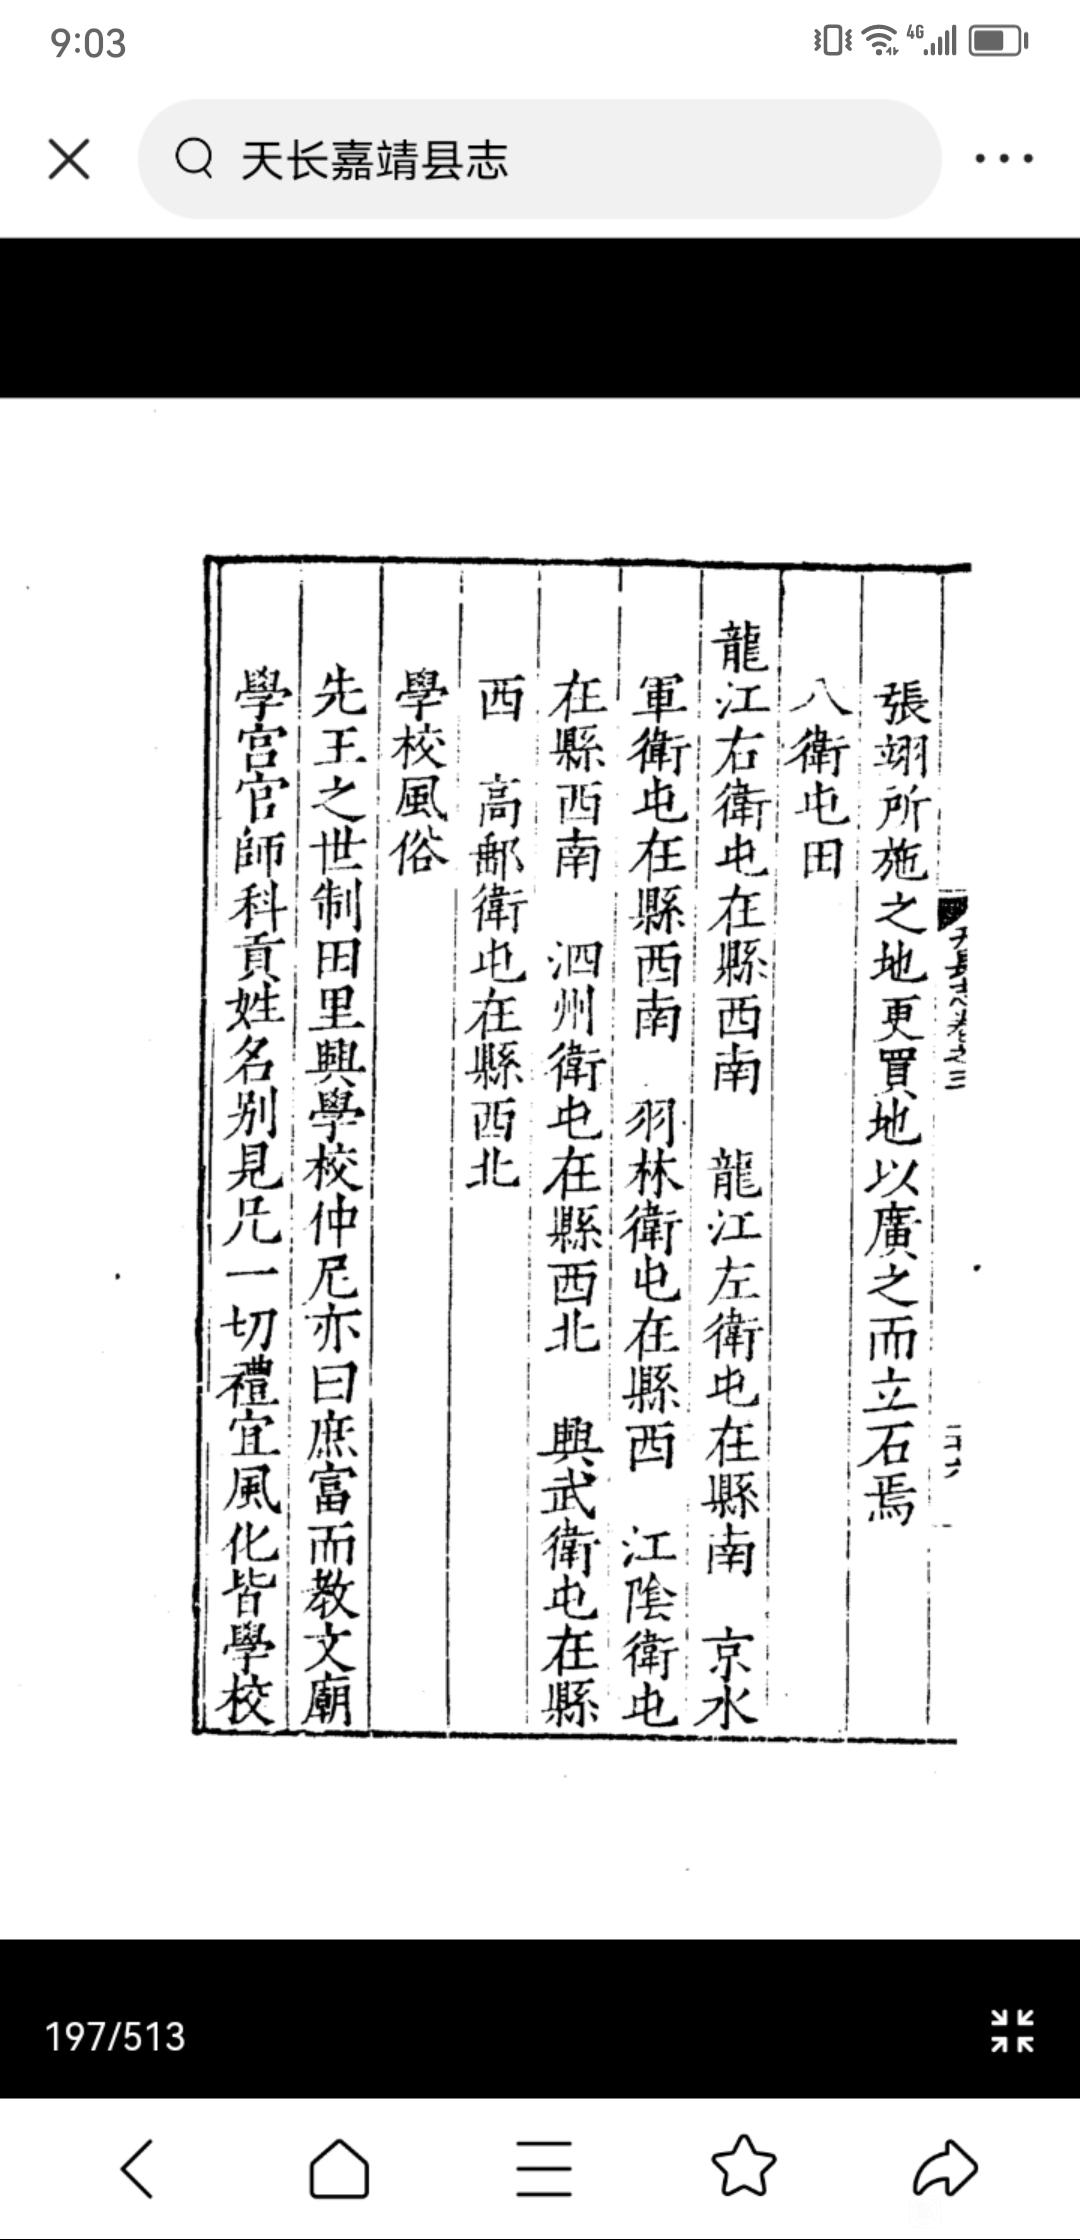 9:03
4G
天长嘉靖县志
天長志卷之三
二十六
張翊所施之地更買地以廣之而立石焉
八衛屯田
龍江右衛屯在縣西南 龍江左衛屯在縣南 京水
軍衛屯在縣西南 羽林衛屯在縣西 江陰衛屯
在縣西南 泗州衛屯在縣西北 興武衛屯在縣
西 高郵衛屯在縣西北
學校風俗
先王之世制田里興學校仲尼亦曰庶富而教文廟
學宮官師科貢姓名别見凡一切禮宜風化皆學校
197/513